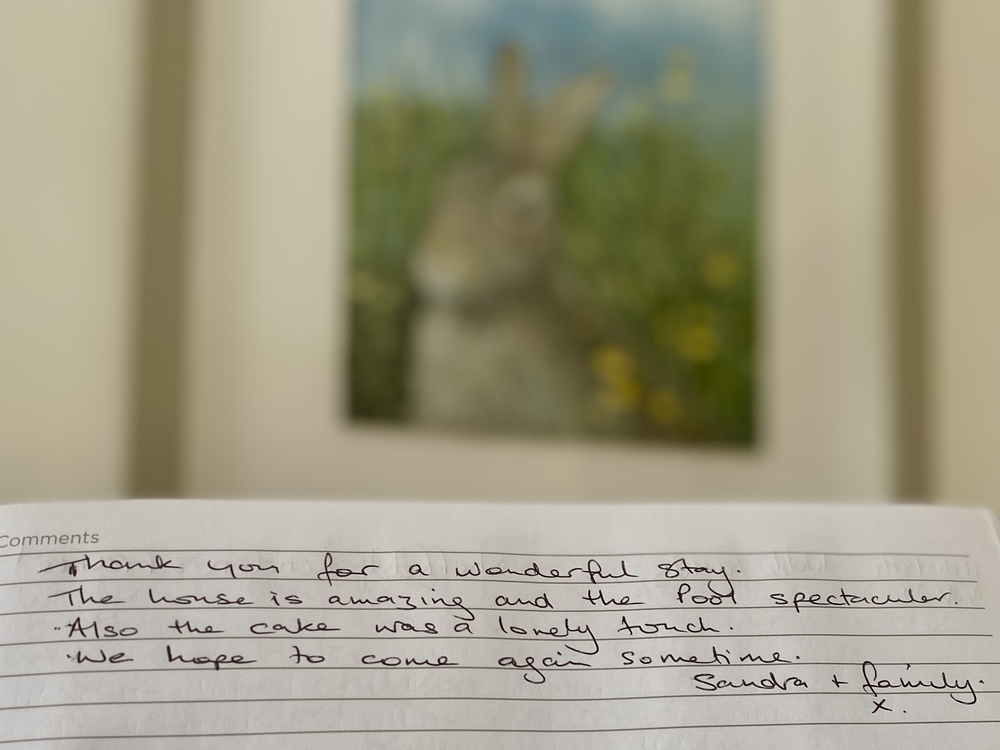 Comments
Thank you for a wonderful stay.
The house is amazing and the Pool spectacular.
Also the cake was a lovely touch.
We hope to come again sometime.
Sandra + family.
x.